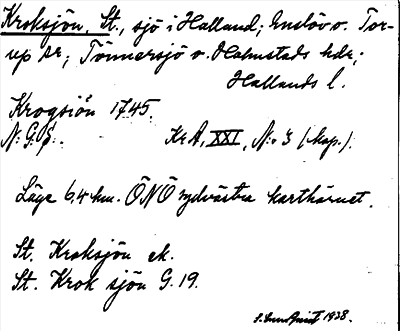 Kroksjön, St., sjö i Halland; Enslöv o. Tor-
up sr; Tönnersjö o. Halmstads hdr;
Hallands l.
Krogsiön 1745.
N: G. Kr A, XXI, N:o 3 (kop.).
Läge 6,4 km. ÖNÖ sydvästra karthörnet.
St. Kroksjön ek.
St. Krok sjön G. 19.
1928.